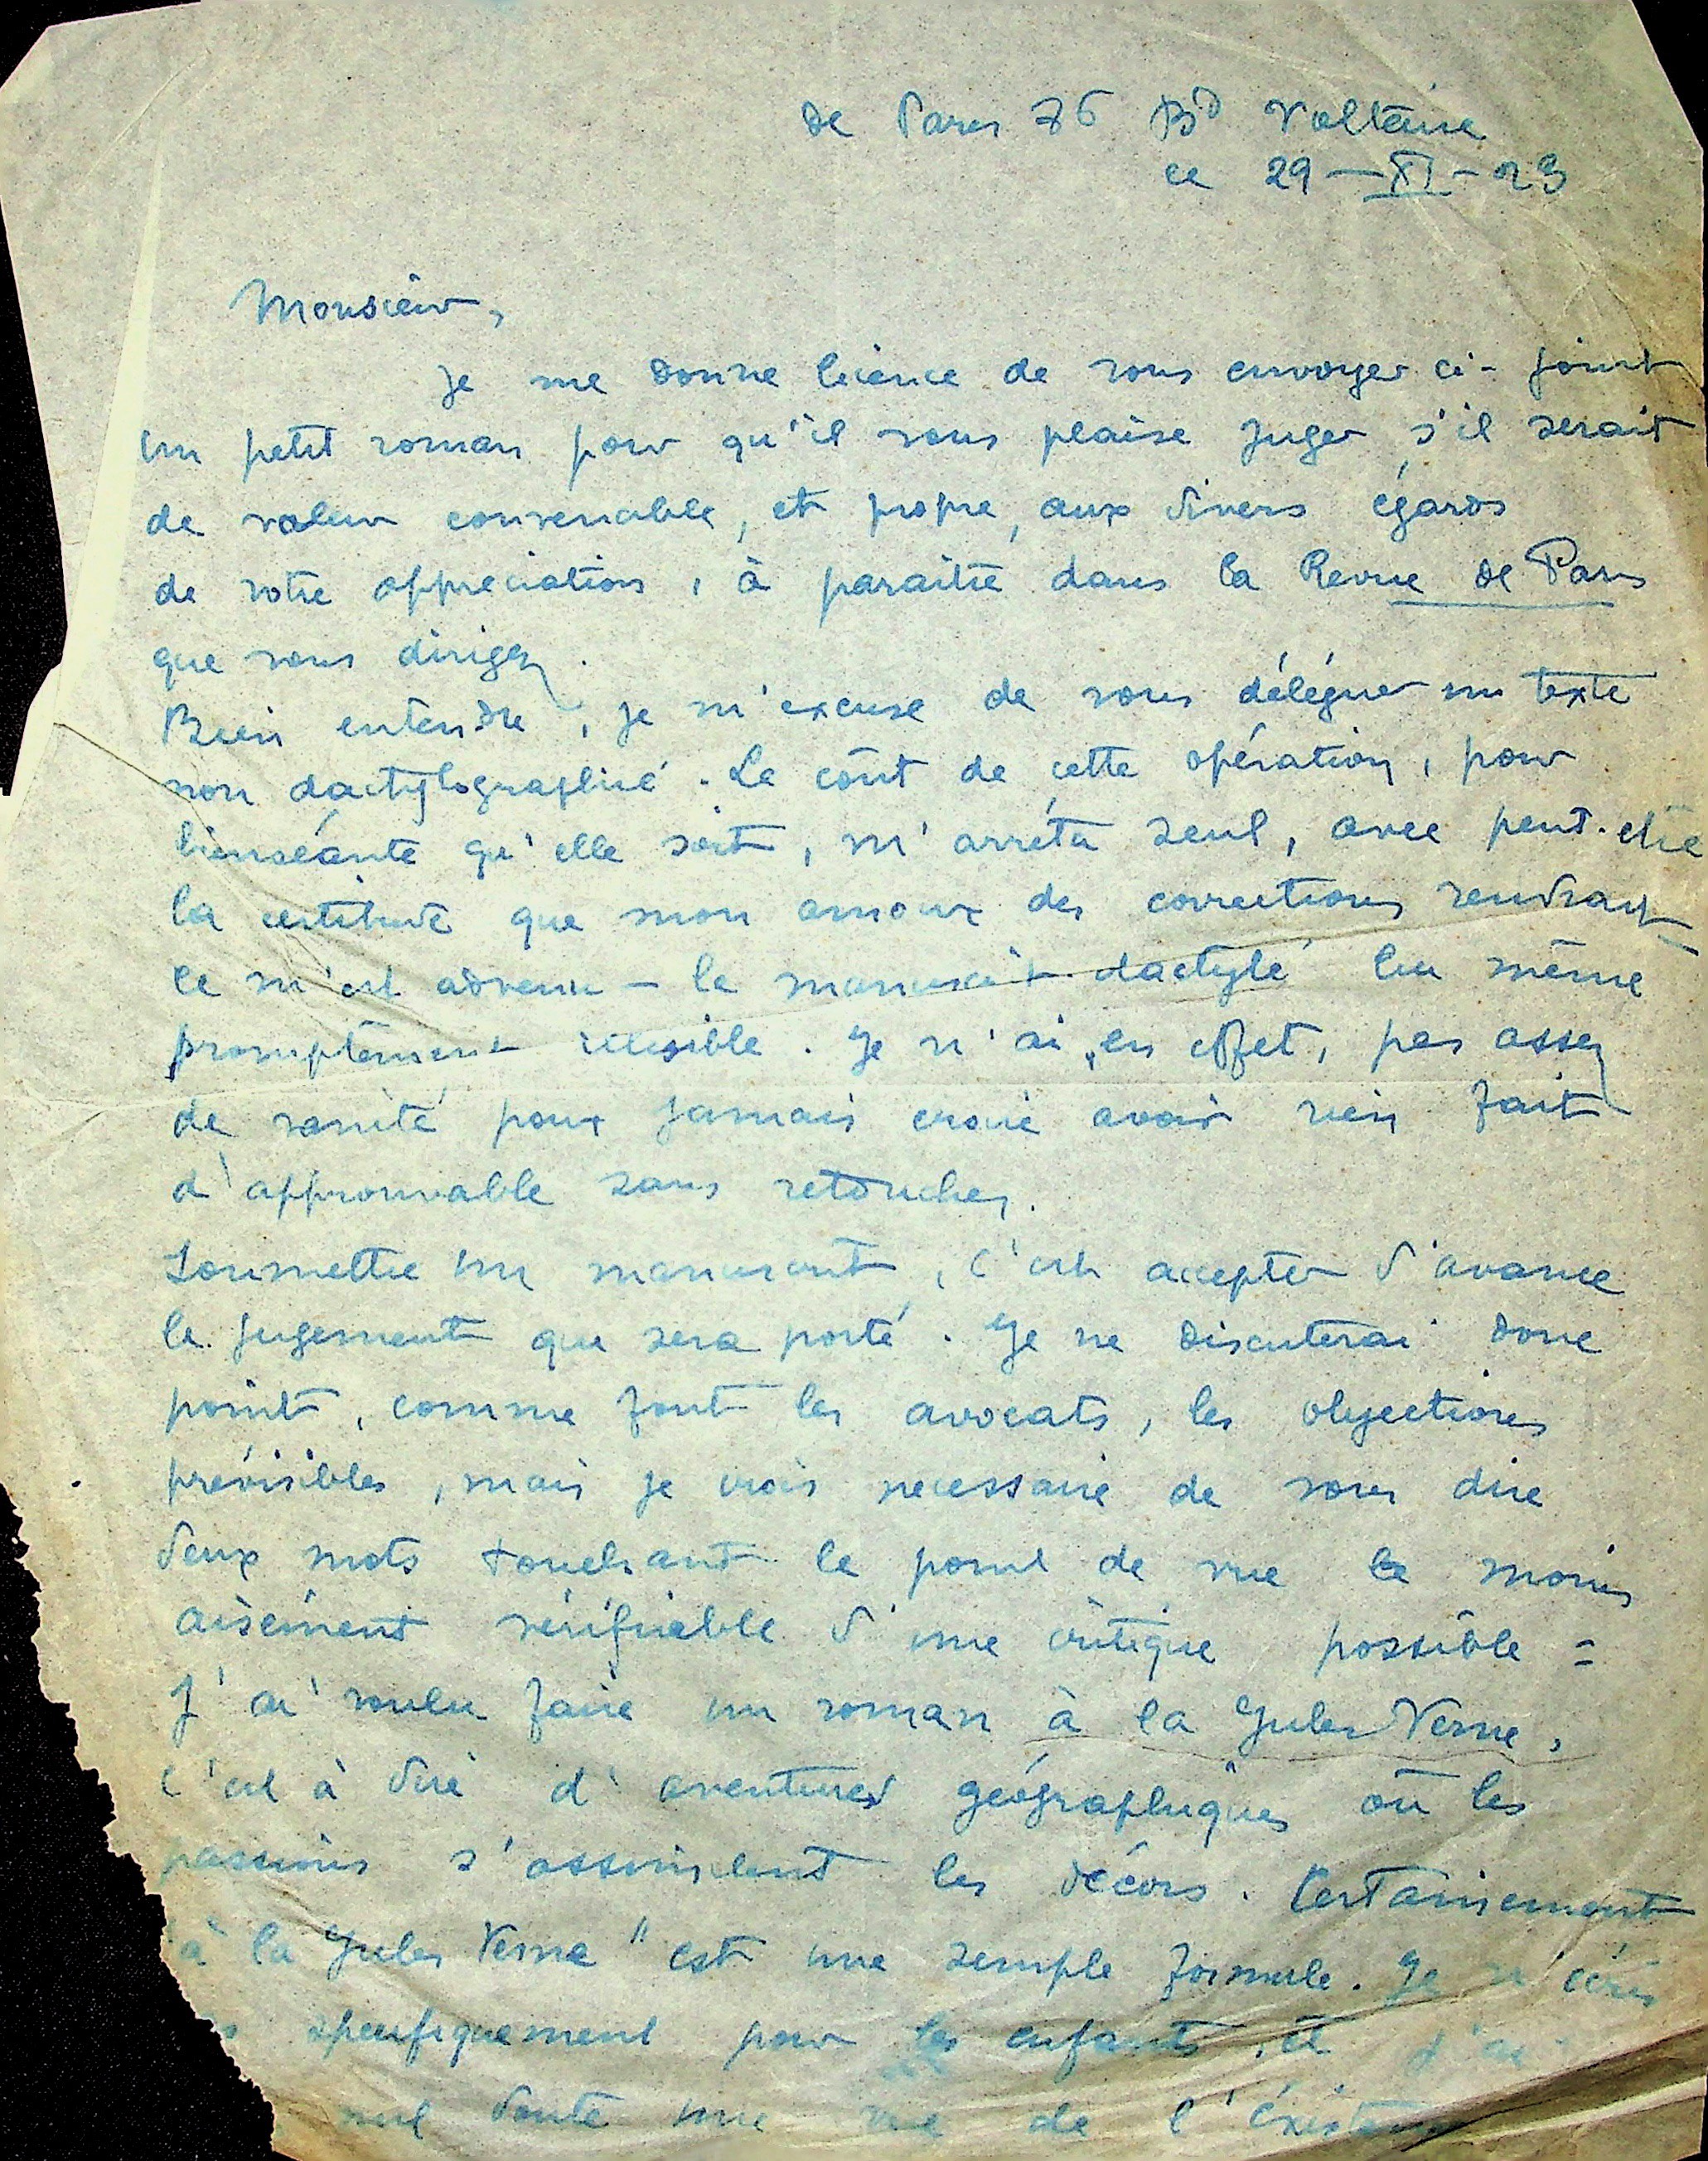 de Paris 76 Bd Voltaire
ce 29 - XI - 23
Monsieur,
Je me donne licence de vous envoyer ci-joint
un petit roman pour qu'il vous plaise juger s'il serait
de valeur convenable, et propre, aux divers égards
de votre appréciation, à paraître dans la Revue de Paris
que vous dirigez.
Bien entendre, je m'excuse de vous déléguer un texte
non dactylographié. Le coût de cette opération, pour
bienséante qu'elle soit, m'arrêta seul, avec peut-être
la certitude que mon amour des corrections rendrait
ce m'est advenu - le manuscrit dactylé lui même
promptement illisible. Je n'ai, en effet, pas assez
de vanité pour jamais croire avoir rien fait
d'approuvable sans retouches.
Soumettre un manuscrit, c'est accepter d'avance
le jugement qui sera porté. Je ne discuterai donc
point, comme font les avocats, les objections
prévisibles, mais je crois necessaire de vous dire
deux mots touchant le point de vue le moins
aisément vérifiable d'une critique possible =
J'ai voulu faire un roman à la Jules Verne,
c'est à dire d'aventures géographiques où les
passions s'assimilent les décors. Certainement
"à la Jules Verne" est une simple formule. Je n'écris
spécifiquement pour les enfants, et j'ai
nul doute une vue de l'éxistence